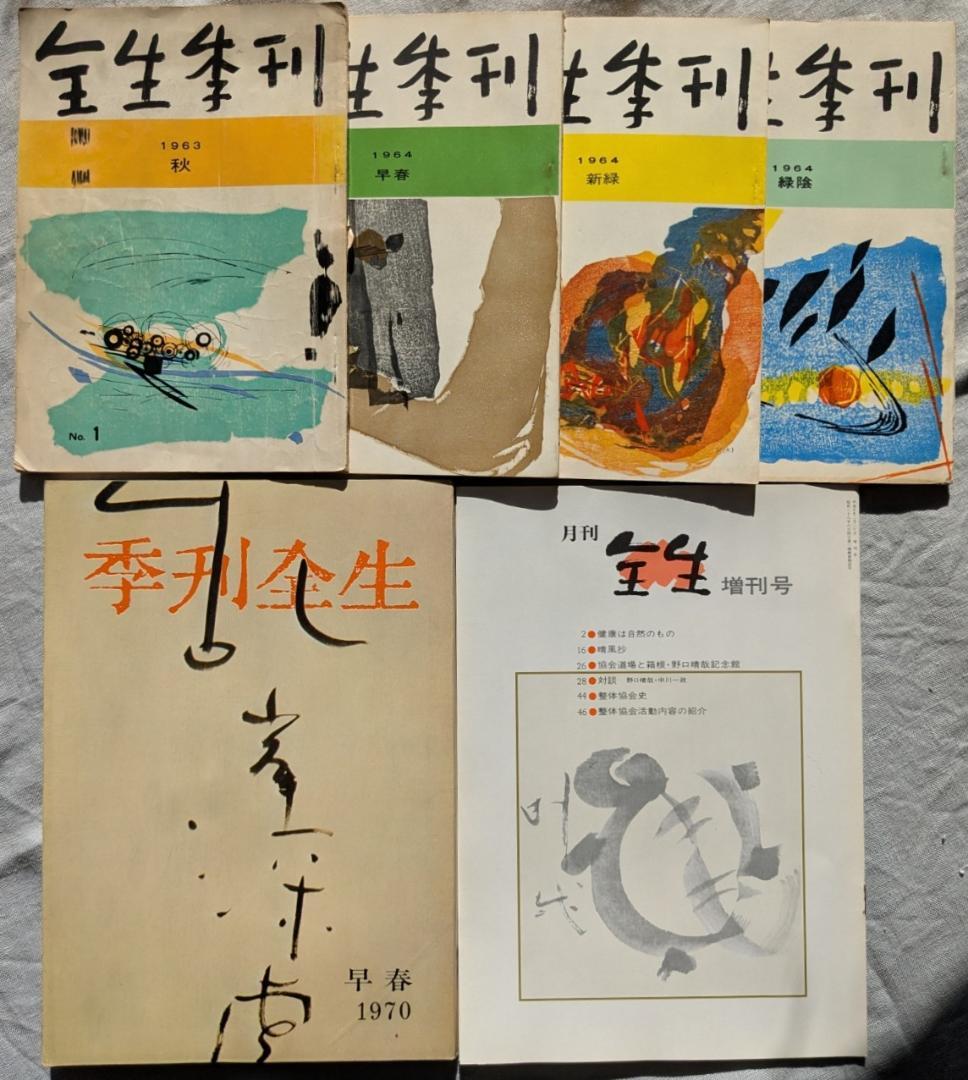 全生季刊
1963
秋
No. 1
生季刊
1964
早春
生季刊
1964
新緑
季刊
1964
緑陰
季刊全生
早春
1970
月刊
全生 増刊号
2●健康は自然のもの
16●晴風抄
26●協会道場と箱根・野口晴哉記念館
28●対談 野口晴哉・中川一政
44●整体協会史
46●整体協会活動内容の紹介